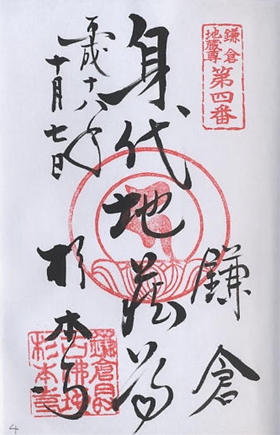 鎌倉
地蔵尊
第四番
鎌倉
身代地蔵尊
平成十八年
十月七日
杉本寺
鎌倉
佛地
杉本寺
4